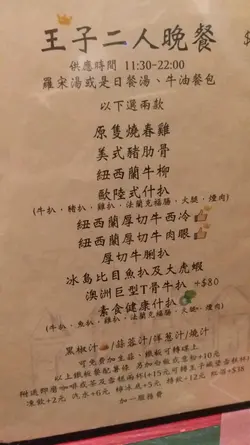 王子二人晚餐
$
供應時間 11:30-22:00
羅宋湯或是日餐湯、牛油餐包
以下選兩款
原隻燒春雞
美式豬肋骨
紐西蘭牛柳
歐陸式什扒
(牛扒，豬扒，雞扒，法蘭克福腸，火腿，煙肉)
紐西蘭厚切牛西冷
紐西蘭厚切牛肉眼
厚切牛脷扒
冰島比目魚扒及大虎蝦
澳洲巨型T骨牛扒 +$80
素食健康什扒
(牛扒，魚扒，雞扒，法蘭克福腸，煙肉)
黑椒汁/蒜蓉汁/洋蔥汁/燒汁
可免費加生菇、鐵板可轉碟上
加一服務費